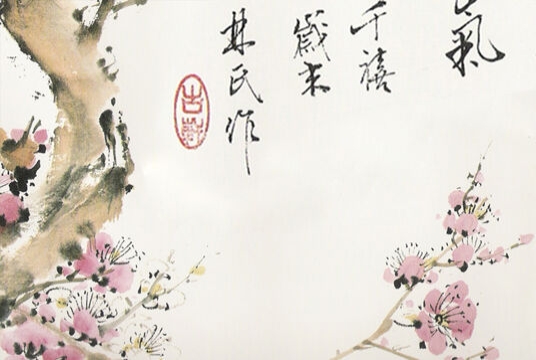 氣
千禧
歲末
林氏作